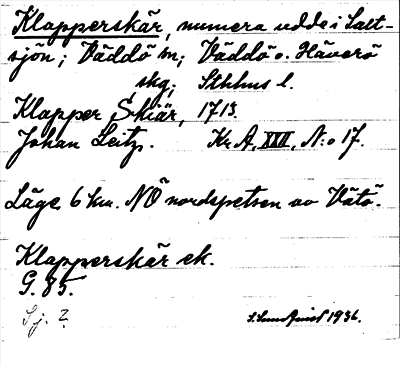 Klapperskär, numera udde i Salt-
sjön; Väddö sn; Väddö o. Häverö
skg; Sthlms l.
Klapper Skiär, 1713.
Johan Leitz. Kr. A, XXII, N:o 17.
Läge 6 km. NÖ nordspetsen av Vätö.
Klapperskär ek.
G. 85.
S. j. ?
S. Sundqvist 1936.